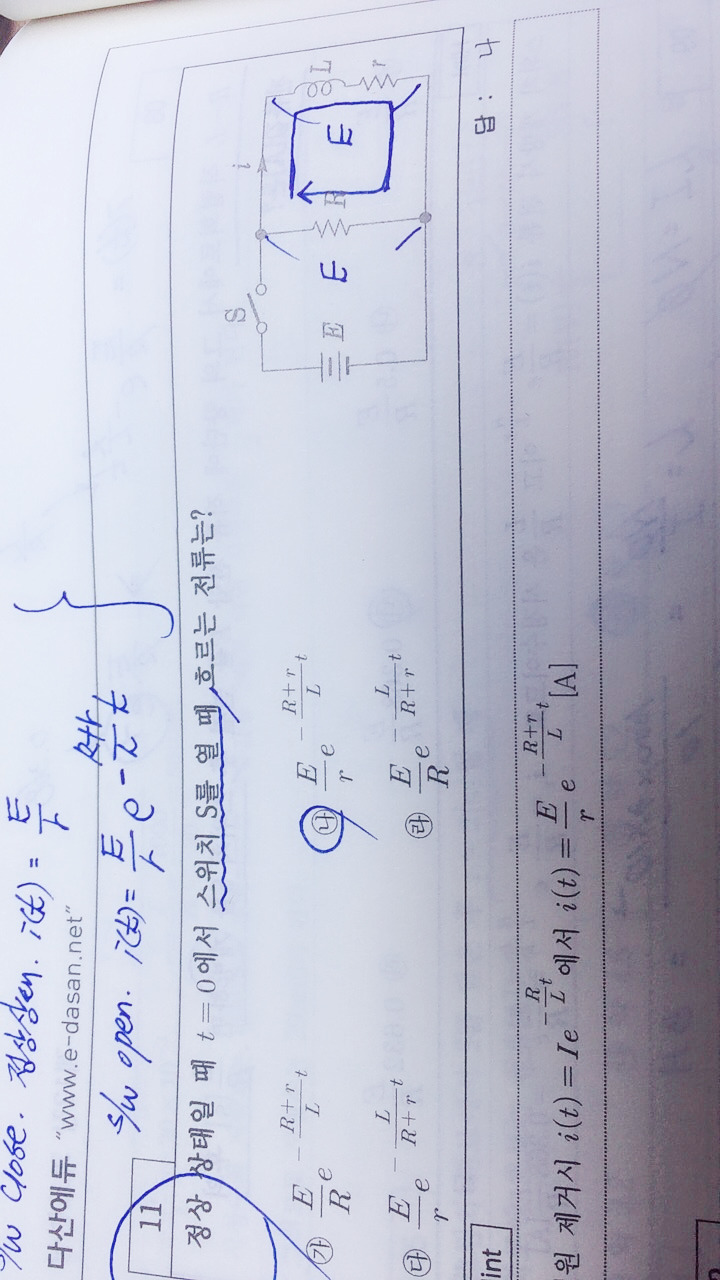 S/W close. 정상상태. i(t) = E/r
다산에듀 "www.e-dasan.net"
S/W open. i(t) = E/r e^{-(R+r)/L t}
11
정상 상태일 때 t = 0에서 스위치 S를 열 때 흐르는 전류는?
㉮ E/R e^{-(R+r)/L t} ㉯ E/r e^{-(R+r)/L t}
㉰ E/r e^{-L/(R+r) t} ㉱ E/R e^{-L/(R+r) t}
S i
E E R E L r
답 : 나
int
원 제거시 i(t) = Ie^{-R/L t} 에서 i(t) = E/r e^{-(R+r)/L t} [A]